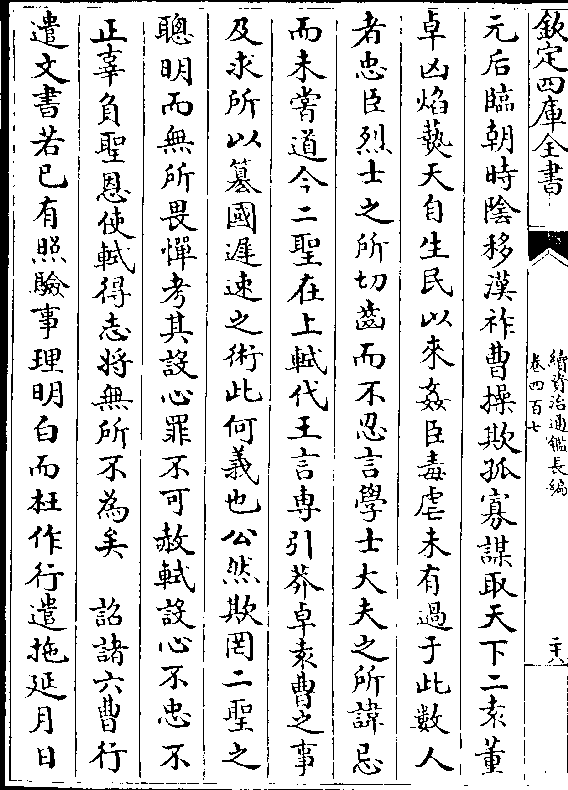 欽定四庫全書
續資治通鑑長編
卷四百七
二十八
元后臨朝時陰移漢祚曹操欺孤寡謀取天下二袁董
卓凶焰蓺天自生民以來姦臣毒虐未有過于此數人
者忠臣烈士之所切齒而不忍言學士大夫之所諱忌
而未嘗道今二聖在上軾代王言専引莽卓袁曹之事
及求所以簒國遲速之術此何義也公然欺罔二聖之
聰明而無所畏憚考其設心罪不可赦軾設心不忠不
正辜負聖恩使軾得志將無所不為矣 詔諸六曹行
遣文書若已有照驗事理明白而枉作行遣拖延月日